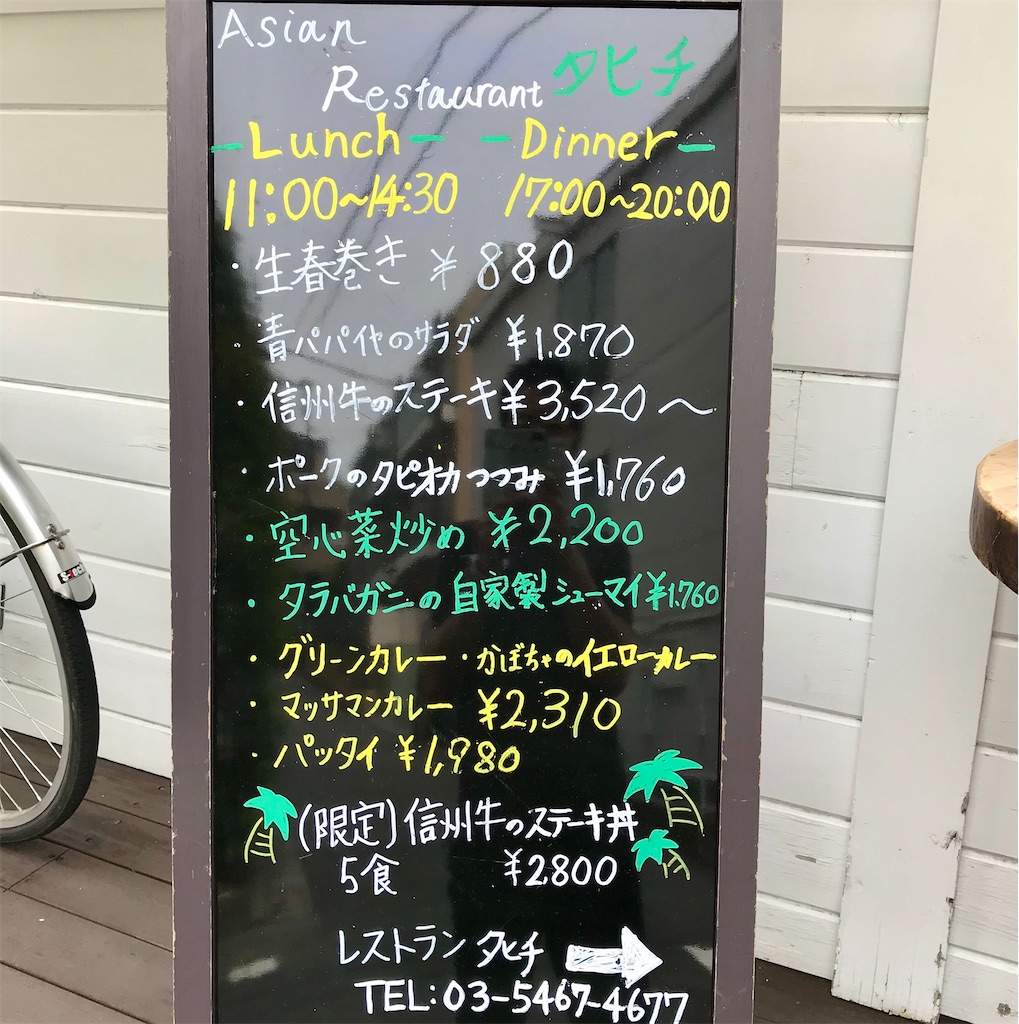 Asian
Restaurant タヒチ
-Lunch- -Dinner-
11:00~14:30 17:00~20:00
・生春巻き ¥880
・青パパイヤのサラダ ¥1.870
・信州牛のステーキ¥3,520〜
・ポークのタピオカつつみ ¥1,760
・空心菜炒め ¥2,200
・タラバガニの自家製シューマイ¥1.760
・グリーンカレー・かぼちゃのイエローカレー
・マッサマンカレー ¥2,310
・パッタイ ¥1,980
(限定)信州牛のステーキ丼
5食 ¥2800
レストラン タヒチ
TEL:03-5467-4677